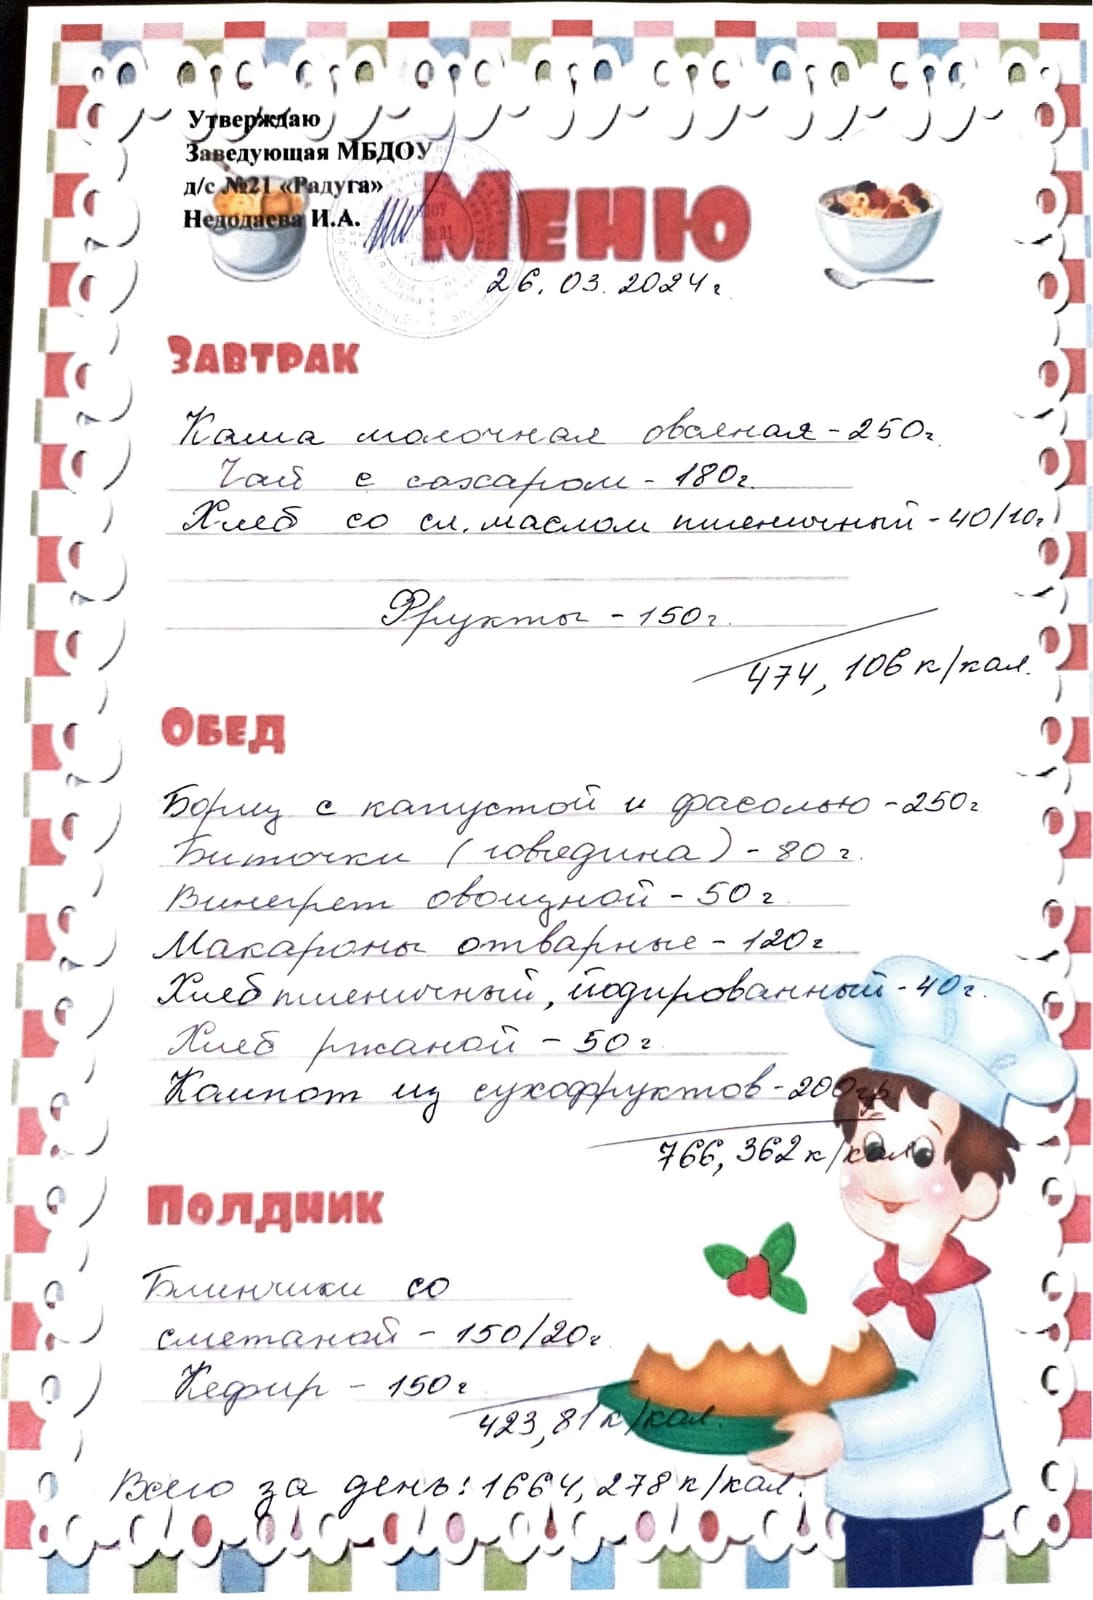 Утверждаю
Заведующая МБДОУ
д/с №21 «Радуга»
Недодаева И.А.
Меню
26.03.2024г.
Завтрак
Каша молочная овсяная - 250г.
Чай с сахаром - 180г.
Хлеб со сл. маслом пшеничный - 40/10г.
Фрукты - 150г.
474,106 к/кал.
Обед
Борщ с капустой и фасолью - 250г
Биточки (говядина) - 80г.
Винегрет овощной - 50г.
Макароны отварные - 120г
Хлеб пшеничный, йодированный - 40г.
Хлеб ржаной - 50г.
Компот из сухофруктов - 200гр
766,362 к/кал
Полдник
Блинчики со
сметаной - 150/20г.
Кефир - 150г
423,81 к/кал.
Всего за день: 1664,278 к/кал.